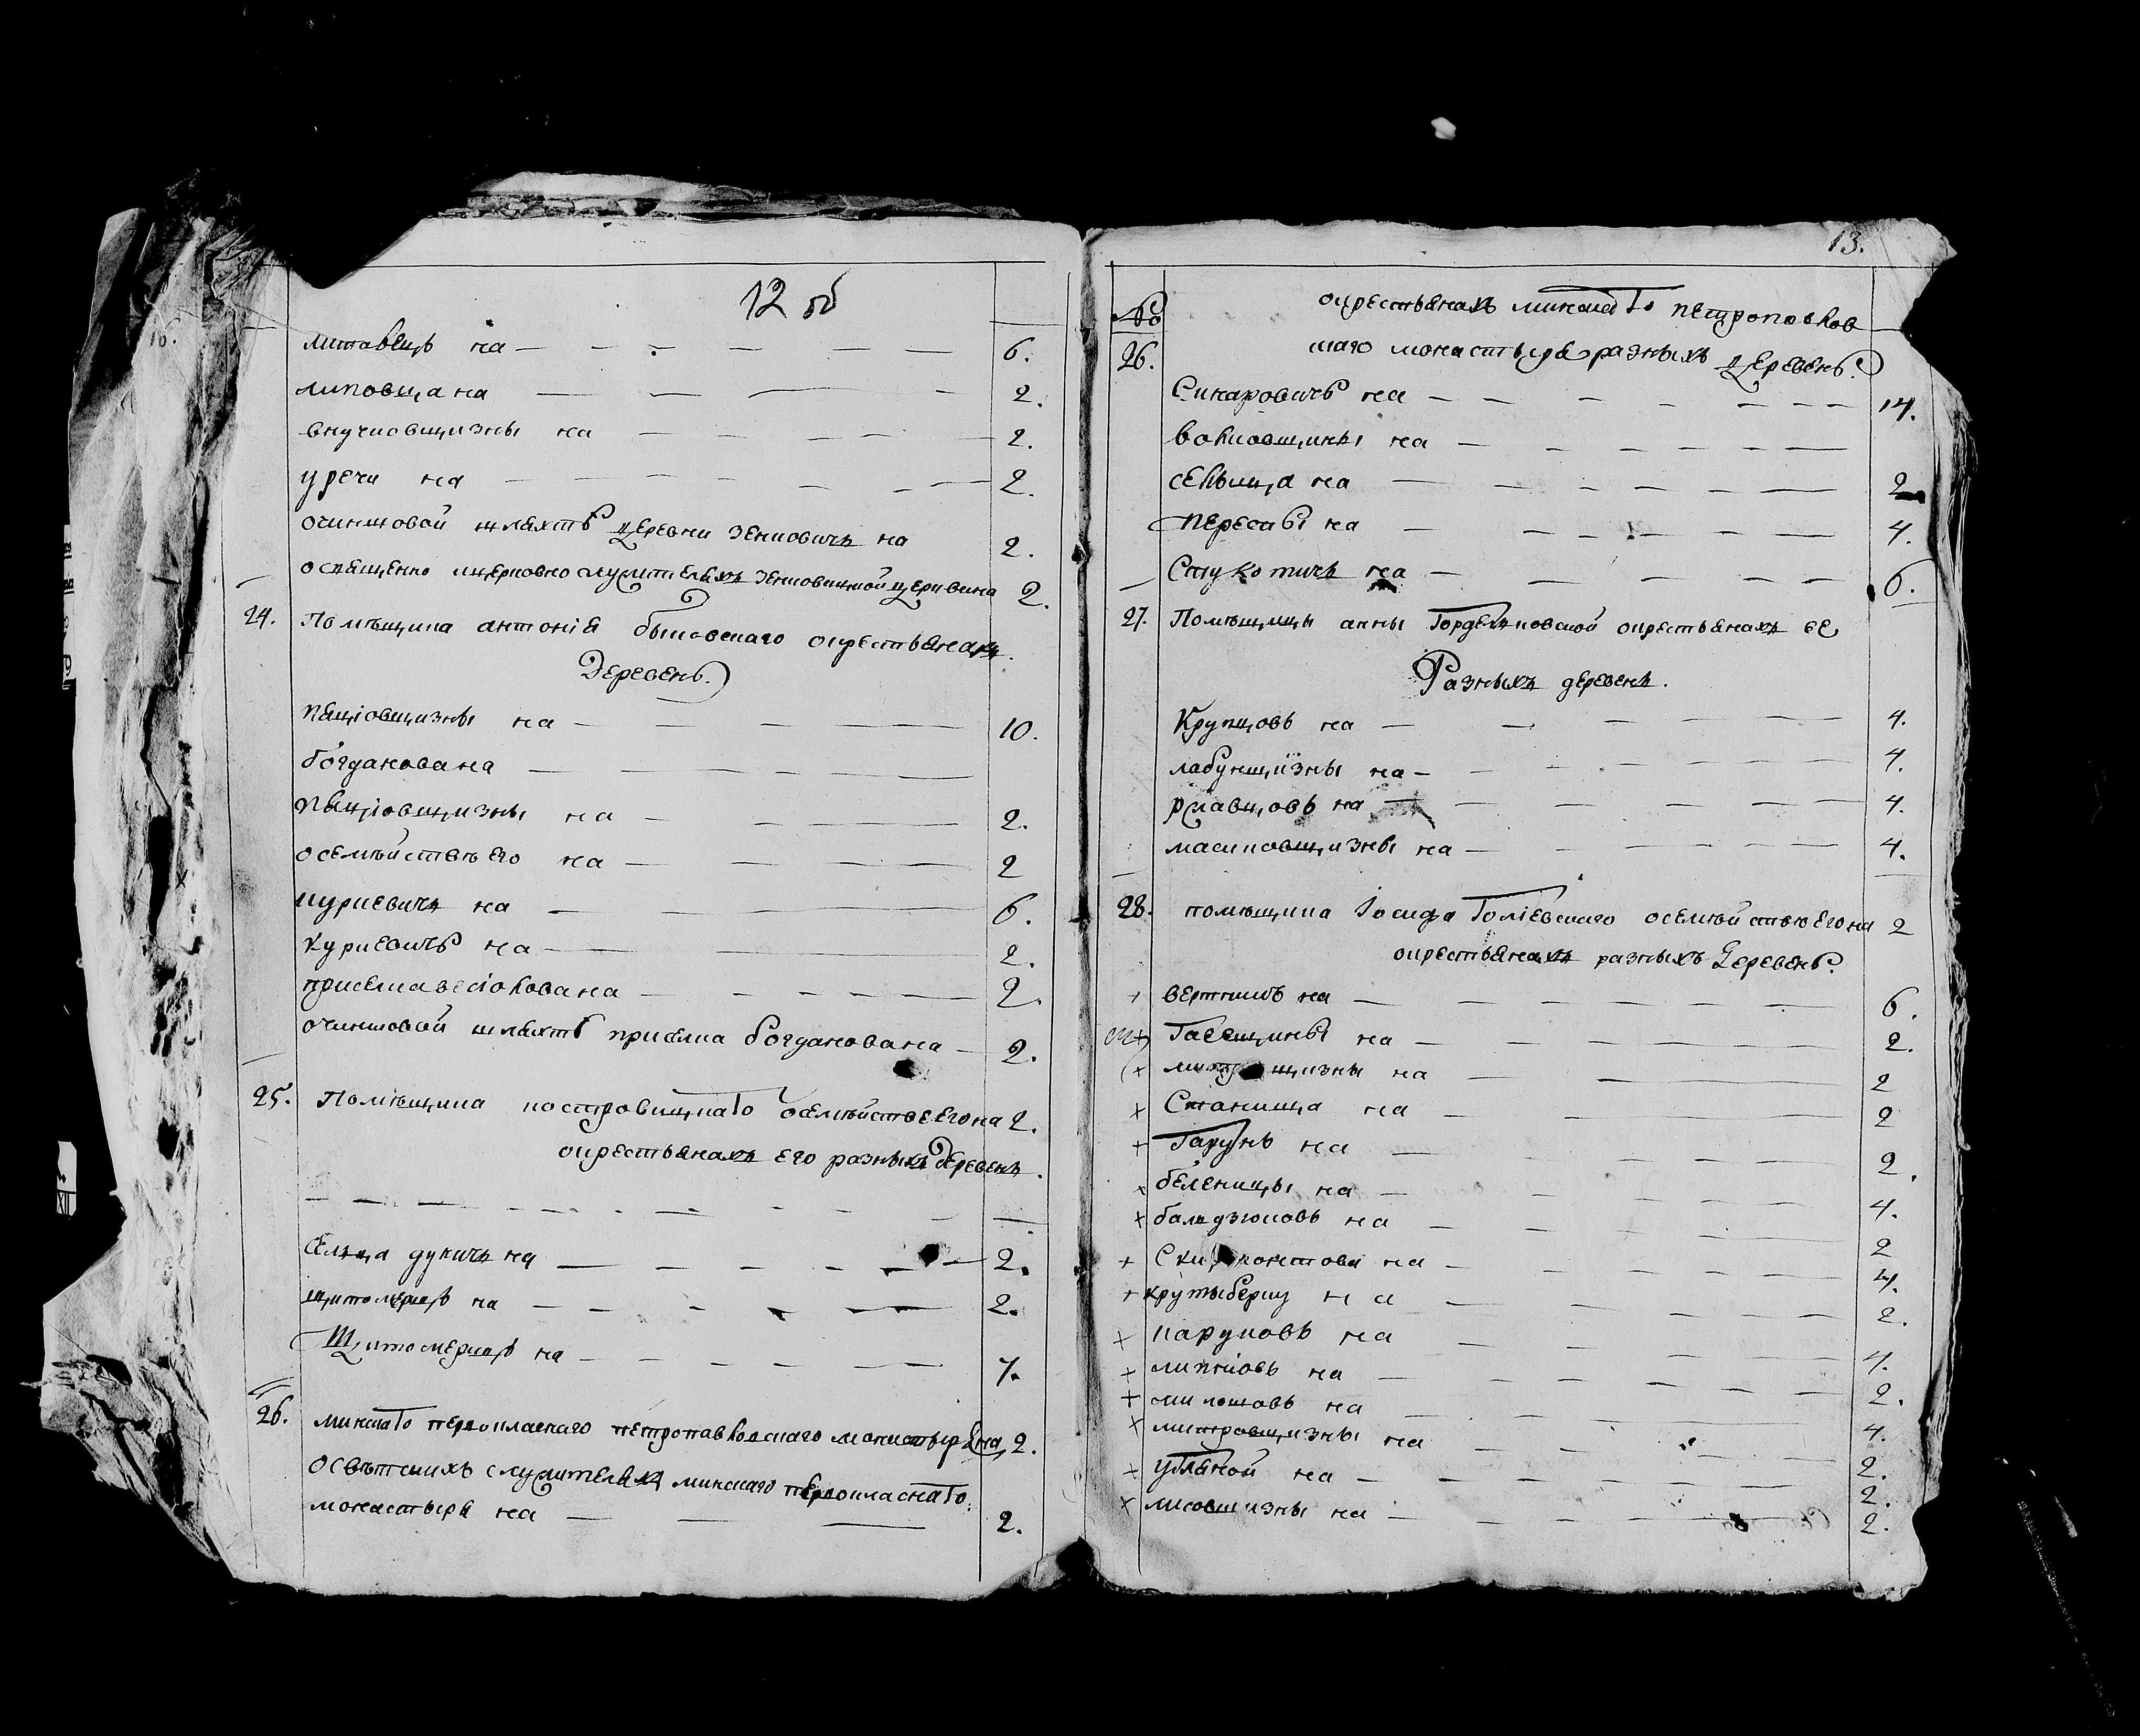 12 об
литавецъ на — 6.
липовца на — 2.
внучковщизны на — 2.
уречи на — 2.
очиншовой шляхтѣ деревни зенковичъ на 2.
освященно ицерковно служителяхъ зенковицкой церкви на 2.
24. Помѣщика антонія бытовскаго окрестьянахъ
Деревень.
пяціовщизны на — 10.
богданова на —
пяціовщизны на — 2.
осемѣйствѣ его на — 2
куркевичъ на — 6.
куркевичъ на — 2.
приселка весіолова на — 2.
очиншовой шляхтѣ приселка богданова на — 2.
25. Помѣщика костровицкаго осемѣйстве его на 2.
окрестьянахъ его разныхъ деревень.
Сельца дукичъ на — 2.
щитомерицъ на — 2.
Щитомерицъ на — 7.
26. минскаго первокласнаго петропавловскаго монастыря на 2.
освѣтскихъ служителяхъ минскаго первокласнаго
монастыря на — 2.
13.
№ окрестьянахъ минскаго петропавлов
26. скаго монастыря разныхъ деревень.
Синаровичъ на — 14.
волковщины на —
сельца на — 2
пересаы на — 4.
Стукотичъ на — 6.
27. Помѣщицы анны Гордзялковской окрестьянахъ ее
Разныхъ деревень.
Крупцовъ на — 4.
лабунщизны на — 4.
рславцовъ на — 4.
масиковщизны на — 4.
28. помѣщика Іосифа Голіевскаго осемѣйствѣ его на 2
окрестьянахъ разныхъ деревень.
+ вертникъ на — 6.
Гаевщины на — 2.
щизны на — 2
× Станища на — 2
+ Гарунь на — 2.
× беленицы на — 4.
× балядзюковъ на — 2
+ на — 4.
+ крутыберщ на — 2.
× наруновъ на — 4.
+ липкіовъ на — 2.
+ милошовъ на — 4.
× митровщизны на — 2.
× убланой на — 2.
× лисовшизны на — 2.